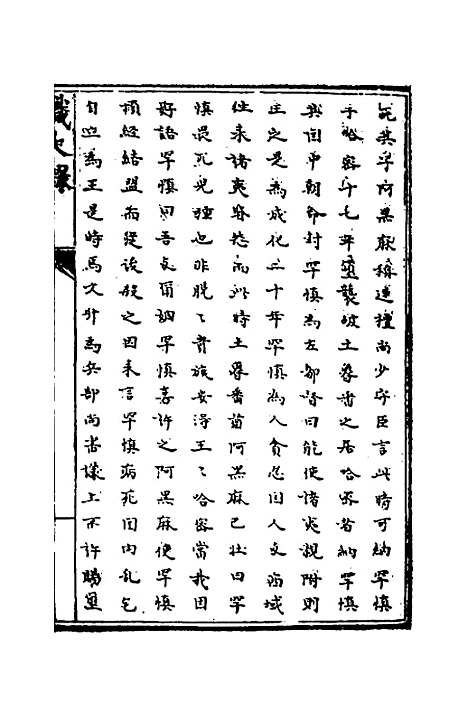 死其子阿黑麻穉速檀尚少守臣言此時可納罕慎
于哈密十七年逐襲破土魯番之居哈密者納罕慎
與國中朝命封罕慎為左都督曰能使諸夷親附則
主之是為成化二十年罕慎為人貪忍國人文西域
往來諸夷皆怨而此時土魯番酋阿黑麻已壯曰罕
慎畏兀兒種也非脫脫貴族安得王王哈密當我因
好語罕慎曰吾女爾罕慎喜許之阿黑麻使罕慎
頂經結盟而發後殺之因來言罕慎病死國內亂乞
自立為王是時馬文升為兵部尚書議上不許賜璽
識大錄